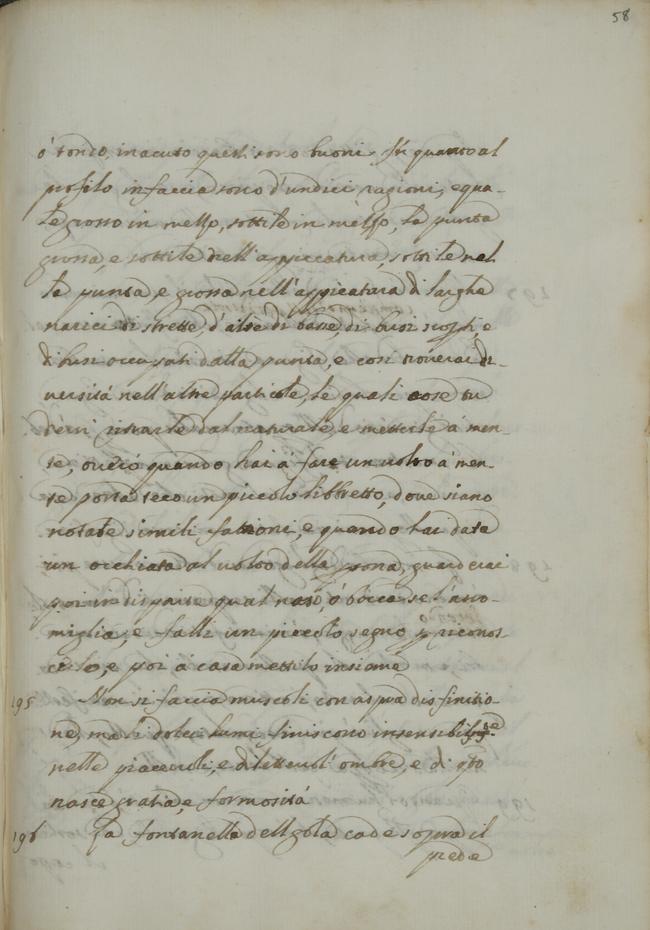 58
ò tondo, in acuto questi sono buoni. In quanto al
profilo in faccia sono d'undici ragioni, equa-
le grosso in mezzo, sottile in mezzo, la punta
grossa, e sottile nell'appiccatura, sottile nel
la punta, e grossa nell'appicatura di larghe
narici di strette, d'alte di basse, di busi scop.ti, e
di busi occupati dalla punta, e così troverai di-
versità nell'altre particole, le quali cose tu
devi ritrarle dal naturale, e metterle à men-
te, overo quando hai à fare un volto à men-
te porta teco un piccolo libbretto, dove siano
notate simili fattioni, e quando hai data
un occhiata al volto della psona, guarderai
poi in disparte qual naso, ò bocca se l'asso-
miglia, e falli un piccolo segno p riconos-
cerlo, e poi à casa mettilo insieme
195 Non si faccia muscoli con aspra disfinitio-
ne, mà li dolci lumi finiscono insensibilmte
nelle piacevoli, e dilettevoli ombre, e di qto
nasce gratia, e formosità
196 La fontanella dell gola cade sopra il
piede